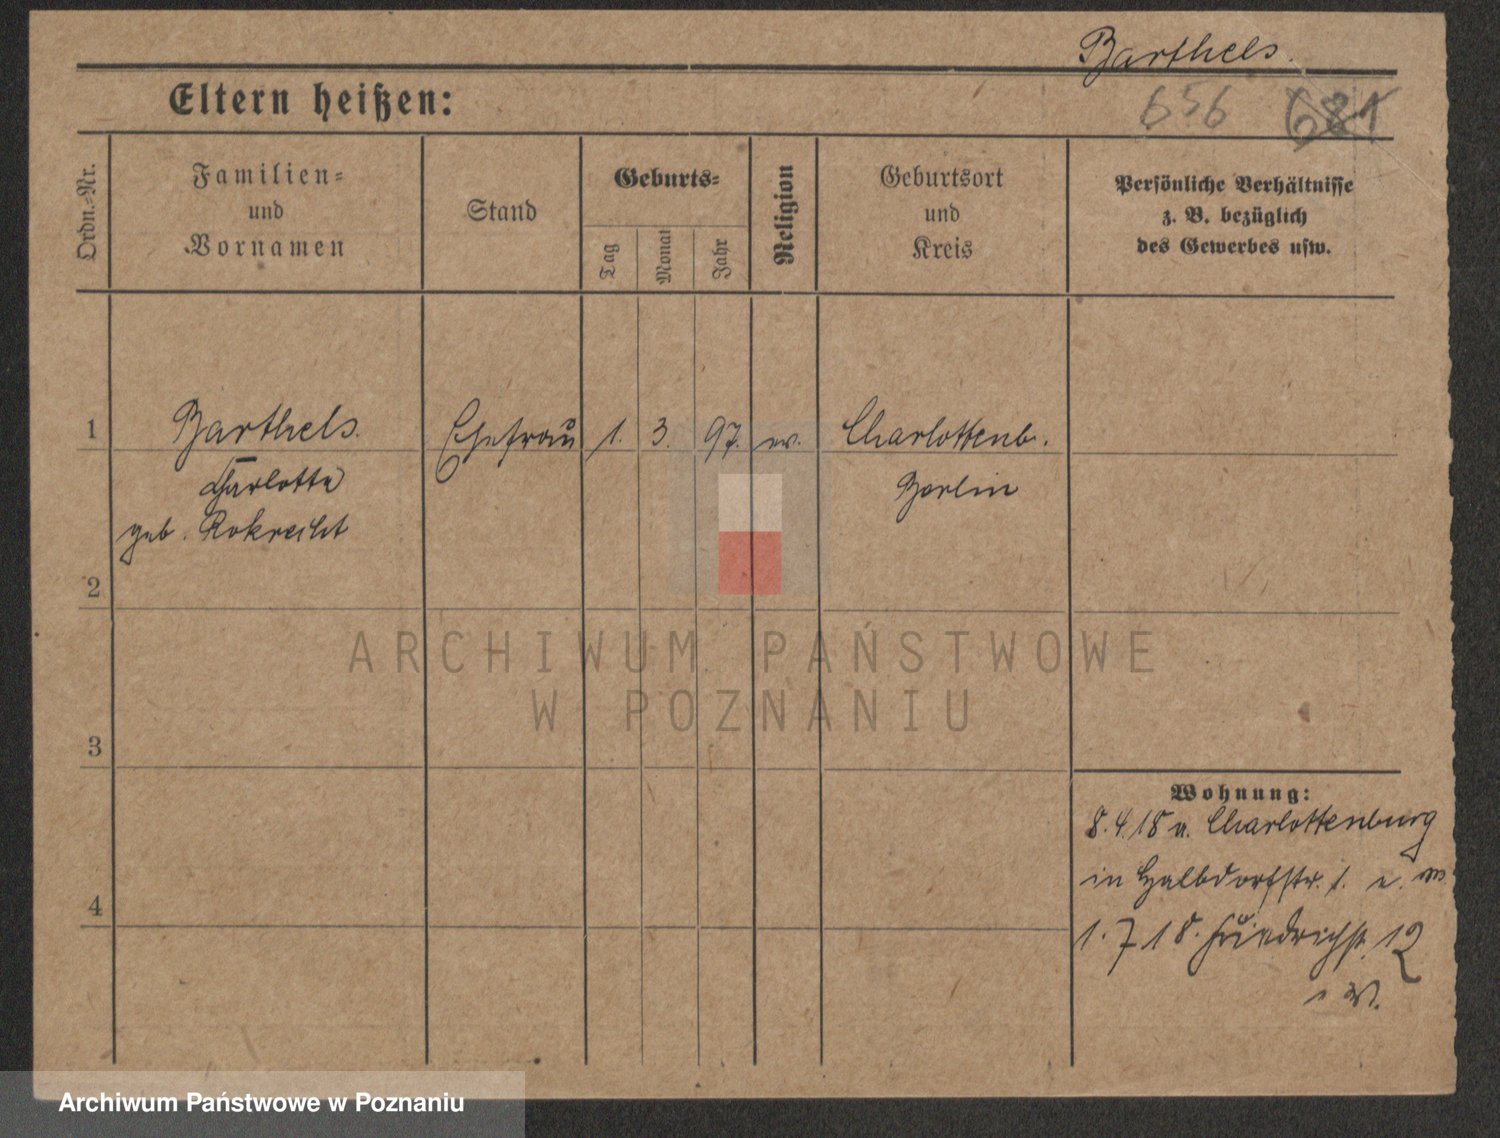 Barthels.
Eltern heißen:
656 681
Ordn.-Nr.
Familien-
und
Vornamen
Stand
Geburts-
Tag
Monat
Jahr
Religion
Geburtsort
und
Kreis
Persönliche Verhältnisse
z. B. bezüglich
des Gewerbes usw.
1 Barthels. Ehefrau 1. 3. 97. ev. Charlottenb.
Charlotte Berlin
geb. Rokrecht
2
ARCHIWUM PAŃSTWOWE
W POZNANIU
3
Wohnung:
8.4.18 a. Charlottenburg
in Halbdorfstr. 1.
4
1.7.18. Friedrichst. 12
Archiwum Państwowe w Poznaniu